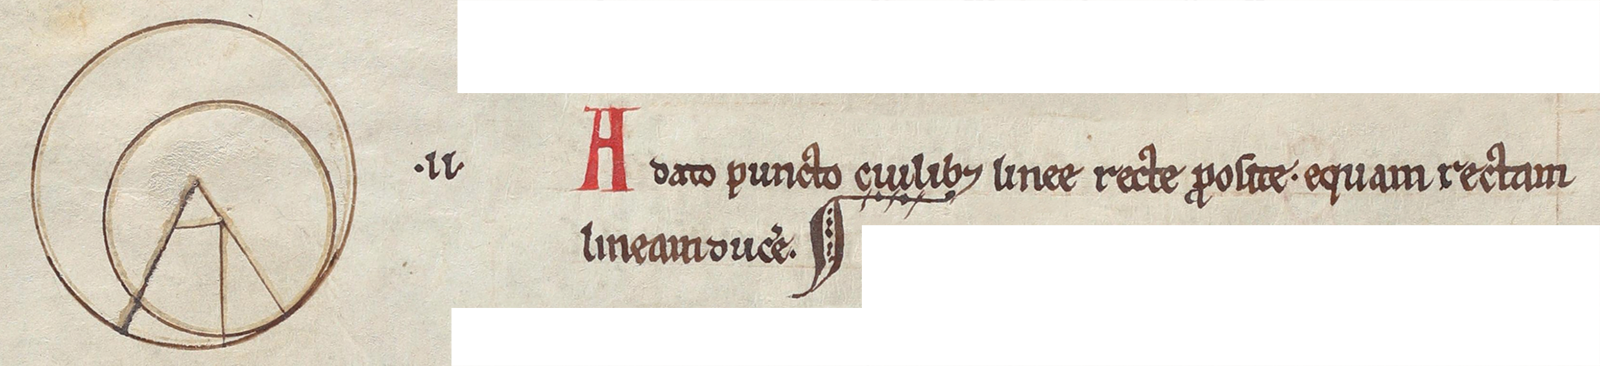 ·II·
A dato puncto cuilibꝫ linee recte ꝓposite· equam rectam
lineam ducͤe.